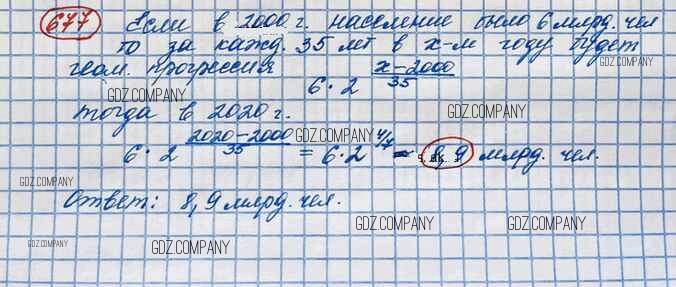 677 Если в 2000 г. население было 6 млрд. чел
то за кажд. 35 лет в x-м году будет
геом. прогрессия 6 · 2^(x-2000)/35
GDZ.COMPANY
GDZ.COMPANY
тогда в 2020 г.
GDZ.COMPANY
6 · 2^(2020-2000)/35 = 6 · 2^4/7 = 8,9 млрд. чел.
GDZ.COMPANY
Ответ: 8,9 млрд. чел.
GDZ.COMPANY
GDZ.COMPANY
GDZ.COMPANY
GDZ.COMPANY